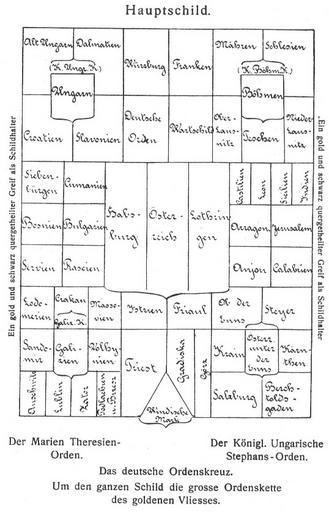 Hauptschild.
Alt Ungarn
Dalmatien
Nürnburg
Franken
Mähren
Schlesien
(K. Ungr. K.)
(K. Böhm K.)
Ungarn
Böhmen
Croatien
Slavonien
Deutsche
Orden
Wartschild
Ober-
Laus-
nitz
Teschen
Nieder-
Laus-
nitz
Sieben-
bürgen
Cumanien
Habs-
burg
Oster-
reich
Lothrin
gen
Castilien
Leon
Sicilien
Indien
Bosnien
Bulgarien
Arragon
Jerusalem
Servien
Rascien
Anjou
Calabrien
Lodo-
merien
Crakau
Galiz. K.
Masso-
vien
Istrien
Friaul
Ob. der
Enns
Steyer
Sando-
mir
Gali-
zien
Volhy-
nien
Triest
Gradiska
Görz
Krain
Österr.
unter
der
Enns
Kärn-
then
Auschwitz
Lublin
Zator
Windische
Mark
Salzburg
Berch-
tolds-
gaden
Ein gold und schwarz quergetheilter Greif als Schildhalter
Ein gold und schwarz quergetheilter Greif als Schildhalter
Der Marien Theresien-
Orden.
Der Königl. Ungarische
Stephans-Orden.
Das deutsche Ordenskreuz.
Um den ganzen Schild die grosse Ordenskette
des goldenen Vliesses.